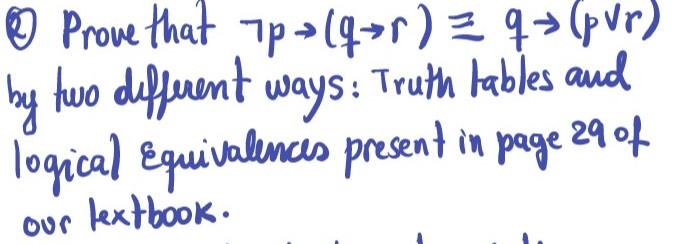 ② Prove that ¬p→(q→r) ≡ q→(p∨r)
by two different ways: Truth tables and
logical Equivalences present in page 29 of
our textbook.